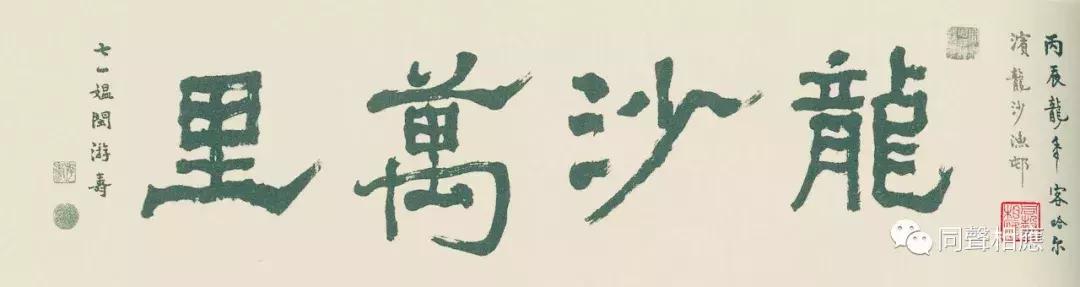 丙辰龍年客哈尔
濱龍沙漁邨
龍沙萬里
七一媪閩游壽
同聲相應